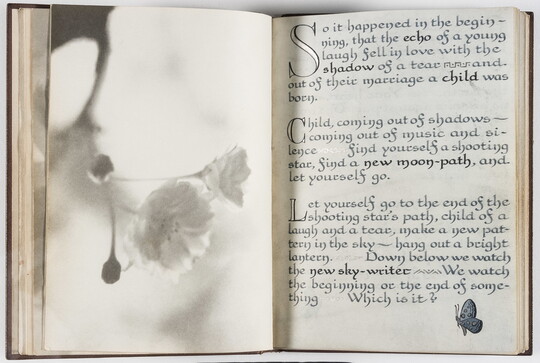 So it happened in the begin-
ning, that the echo of a young
laugh fell in love with the
shadow of a tear and-
out of their marriage a child was
born.
Child, coming out of shadows-
coming out of music and si-
lence find yourself a shooting
star, find a new moon-path, and
let yourself go.
Let yourself go to the end of the
shooting star's path, child of a
laugh and a tear, make a new pat-
tern in the sky - hang out a bright
lantern. Down below we watch
the new sky-writer We watch
the beginning or the end of some-
thing Which is it?